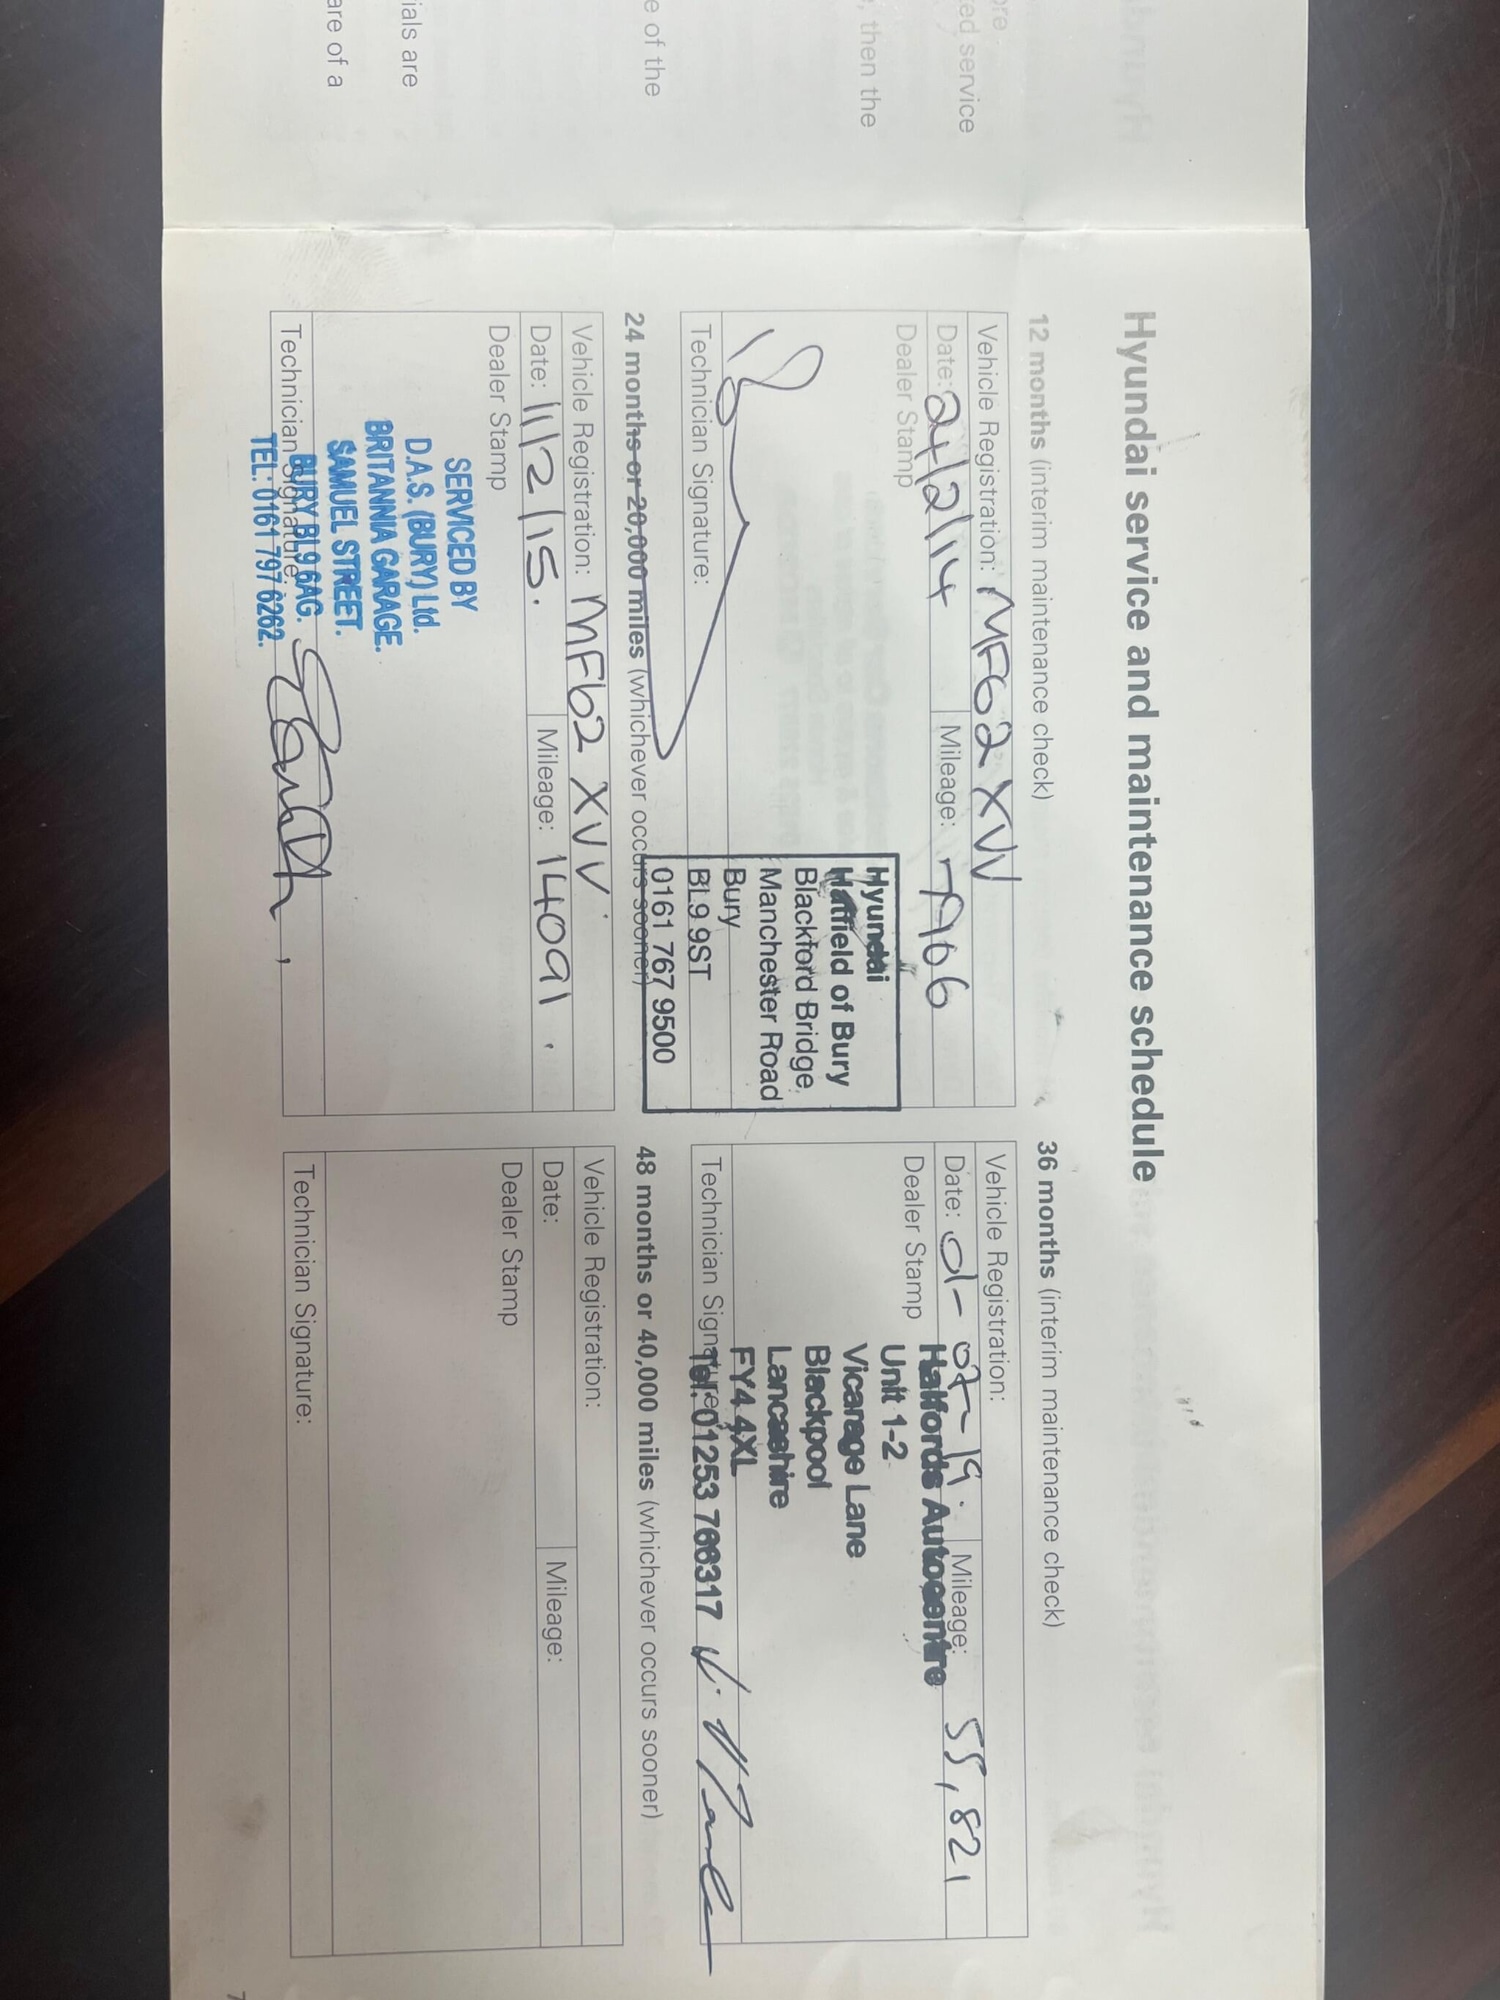 are
ed service
, then the
e of the
ials are
are of a
Hyundai service and maintenance schedule
12 months (interim maintenance check)
Vehicle Registration: MF62 XVV
Date: 24/2/14 Mileage: 7906
Dealer Stamp
Hyundai
Hatfield of Bury
Blackford Bridge,
Manchester Road
Bury
BL9 9ST
0161 767 9500
Technician Signature:
24 months or 20,000 miles (whichever occurs sooner)
Vehicle Registration: MF62 XVV
Date: 11/2/15. Mileage: 14091
Dealer Stamp
SERVICED BY
D.A.S. (BURY) Ltd.
BRITANNIA GARAGE.
SAMUEL STREET.
BURY BL9 6AG.
TEL: 0161 797 6262.
Technician Signature:
36 months (interim maintenance check)
Vehicle Registration:
Date: 01-07-19. Mileage: 55,821
Dealer Stamp
Halfords Autocentre
Unit 1-2
Vicarage Lane
Blackpool
Lancashire
FY4 4XL
Tel: 01253 766317
Technician Signature:
48 months or 40,000 miles (whichever occurs sooner)
Vehicle Registration:
Date: Mileage:
Dealer Stamp
Technician Signature:
7